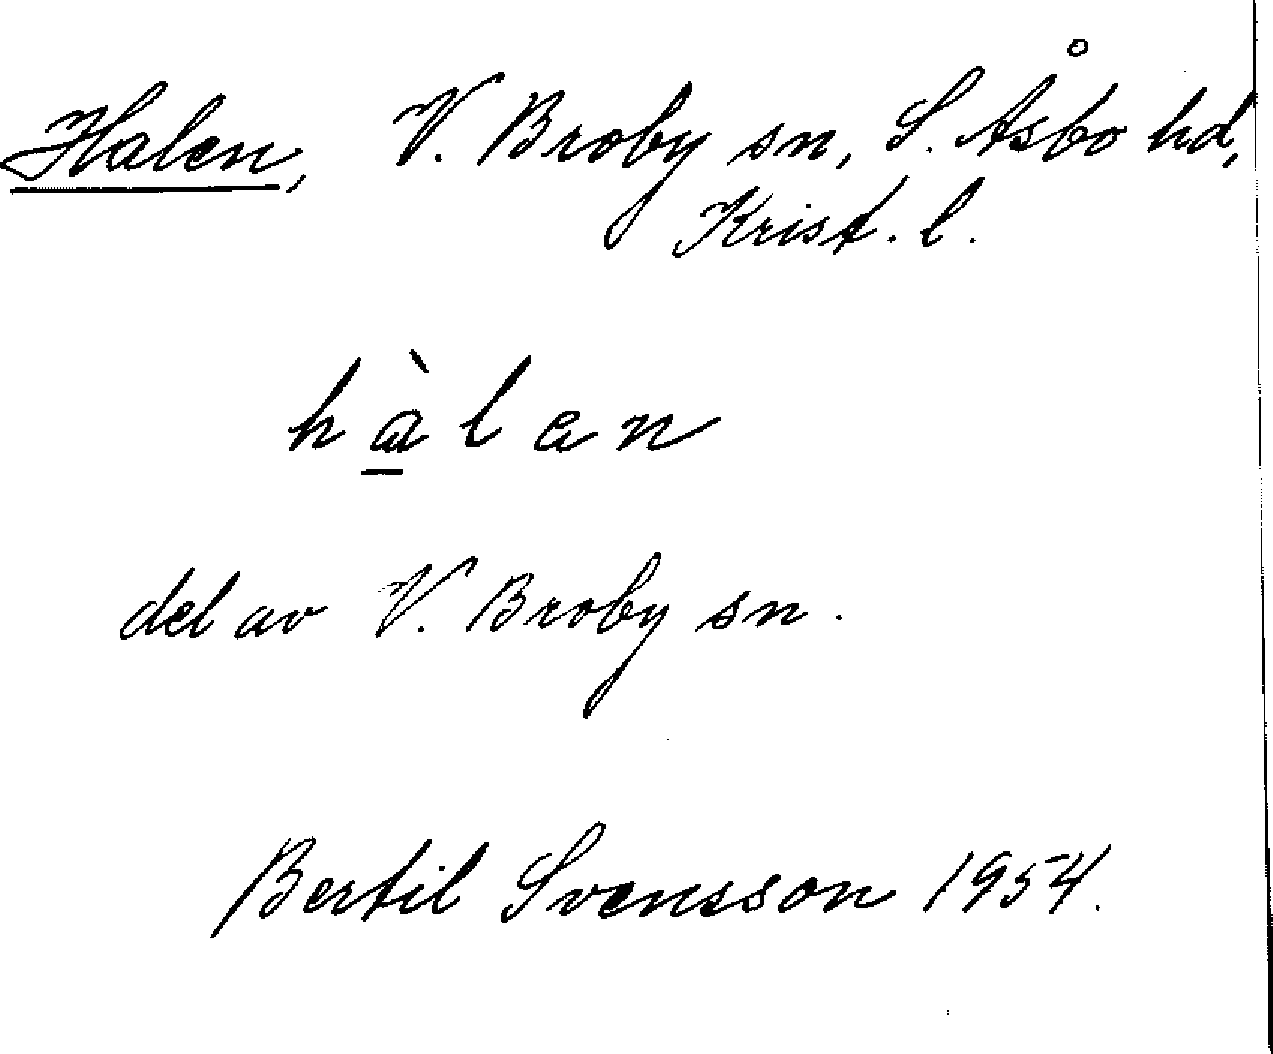 Halen, V. Broby sn, S. Åsbo hd,
Krist. l.
hàlan
del av V. Broby sn.
Bertil Svensson 1954.